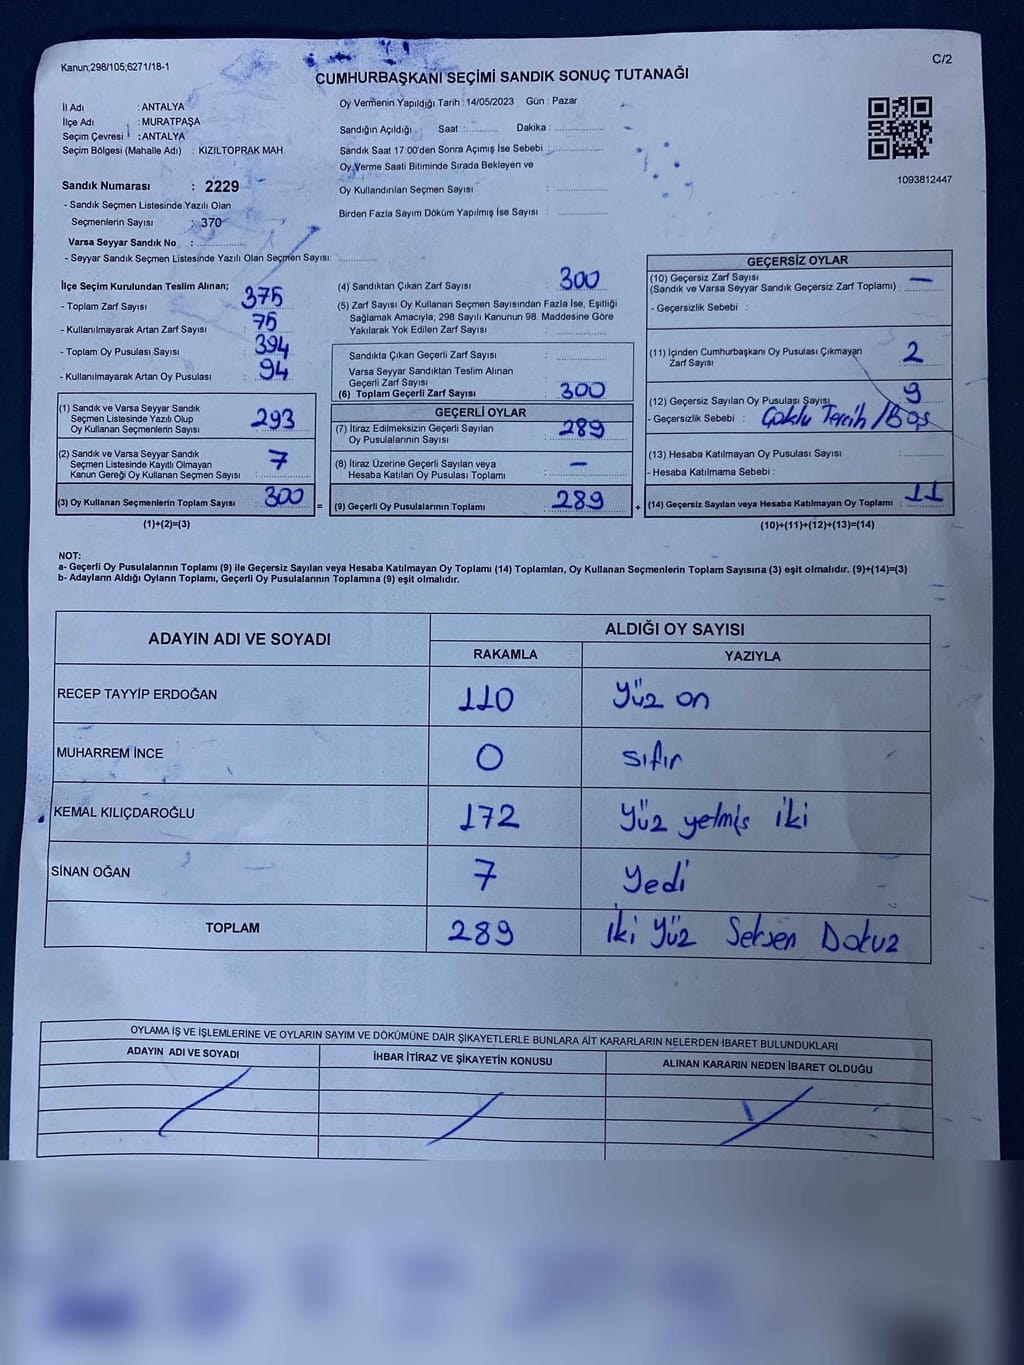 Kanun;298/105;6271/18-1
C/2
CUMHURBAŞKANI SEÇİMİ SANDIK SONUÇ TUTANAĞI
İl Adı : ANTALYA
İlçe Adı : MURATPAŞA
Seçim Çevresi : ANTALYA
Seçim Bölgesi (Mahalle Adı) : KIZILTOPRAK MAH.
Sandık Numarası : 2229
- Sandık Seçmen Listesinde Yazılı Olan
Seçmenlerin Sayısı : 370
Varsa Seyyar Sandık No : ............
- Seyyar Sandık Seçmen Listesinde Yazılı Olan Seçmen Sayısı: ............
Oy Vermenin Yapıldığı Tarih : 14/05/2023 Gün : Pazar
Sandığın Açıldığı Saat :............ Dakika : ............
Sandık Saat 17:00'den Sonra Açımış İse Sebebi : ............
Oy Verme Saati Bitiminde Sırada Bekleyen ve
Oy Kullandırılan Seçmen Sayısı : ............
Birden Fazla Sayım Döküm Yapılmış İse Sayısı : ............
1093812447
İlçe Seçim Kurulundan Teslim Alınan;
- Toplam Zarf Sayısı : 375
- Kullanılmayarak Artan Zarf Sayısı : 75
- Toplam Oy Pusulası Sayısı : 394
- Kullanılmayarak Artan Oy Pusulası : 94
(1) Sandık ve Varsa Seyyar Sandık
Seçmen Listesinde Yazılı Olup
Oy Kullanan Seçmenlerin Sayısı : 293
(2) Sandık ve Varsa Seyyar Sandık
Seçmen Listesinde Kayıtlı Olmayan
Kanun Gereği Oy Kullanan Seçmen Sayısı : 7
(3) Oy Kullanan Seçmenlerin Toplam Sayısı : 300
(1)+(2)=(3)
=
(4) Sandıktan Çıkan Zarf Sayısı : 300
(5) Zarf Sayısı Oy Kullanan Seçmen Sayısından Fazla İse, Eşitliği
Sağlamak Amacıyla, 298 Sayılı Kanunun 98. Maddesine Göre
Yakılarak Yok Edilen Zarf Sayısı : ............
Sandıkta Çıkan Geçerli Zarf Sayısı : ............
Varsa Seyyar Sandıktan Teslim Alınan
Geçerli Zarf Sayısı : ............
(6) Toplam Geçerli Zarf Sayısı : 300
GEÇERLİ OYLAR
(7) İtiraz Edilmeksizin Geçerli Sayılan
Oy Pusulalarının Sayısı : 289
(8) İtiraz Üzerine Geçerli Sayılan veya
Hesaba Katılan Oy Pusulası Toplamı : —
(9) Geçerli Oy Pusulalarının Toplamı : 289
+
GEÇERSİZ OYLAR
(10) Geçersiz Zarf Sayısı
(Sandık ve Varsa Seyyar Sandık Geçersiz Zarf Toplamı) : —
- Geçersizlik Sebebi :
(11) İçinden Cumhurbaşkanı Oy Pusulası Çıkmayan
Zarf Sayısı : 2
(12) Geçersiz Sayılan Oy Pusulası Sayısı : 9
- Geçersizlik Sebebi : Çoklu Tercih / Boş
(13) Hesaba Katılmayan Oy Pusulası Sayısı : ............
- Hesaba Katılmama Sebebi :
(14) Geçersiz Sayılan veya Hesaba Katılmayan Oy Toplamı : 11
(10)+(11)+(12)+(13)=(14)
NOT:
a- Geçerli Oy Pusulalarının Toplamı (9) ile Geçersiz Sayılan veya Hesaba Katılmayan Oy Toplamı (14) Toplamları, Oy Kullanan Seçmenlerin Toplam Sayısına (3) eşit olmalıdır. (9)+(14)=(3)
b- Adayların Aldığı Oyların Toplamı, Geçerli Oy Pusulalarının Toplamına (9) eşit olmalıdır.
ADAYIN ADI VE SOYADI ALDIĞI OY SAYISI
RAKAMLA YAZIYLA
RECEP TAYYİP ERDOĞAN 110 Yüz on
MUHARREM İNCE 0 sıfır
KEMAL KILIÇDAROĞLU 172 Yüz yetmiş iki
SİNAN OĞAN 7 Yedi
TOPLAM 289 İki Yüz Seksen Dokuz
OYLAMA İŞ VE İŞLEMLERİNE VE OYLARIN SAYIM VE DÖKÜMÜNE DAİR ŞİKAYETLERLE BUNLARA AİT KARARLARIN NELERDEN İBARET BULUNDUKLARI
ADAYIN ADI VE SOYADI İHBAR İTİRAZ VE ŞİKAYETİN KONUSU ALINAN KARARIN NEDEN İBARET OLDUĞU